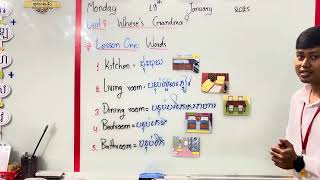 Monday 19th January 2025
Unit 8: Where's Grandma?
Lesson One: Words
1. Kitchen = ផ្ទះបាយ
2. Living room = បន្ទប់ទទួលភ្ញៀវ
3. Dining room = បន្ទប់បរិភោគអាហារ
4. Bedroom = បន្ទប់គេង
5. Bathroom = បន្ទប់ទឹក